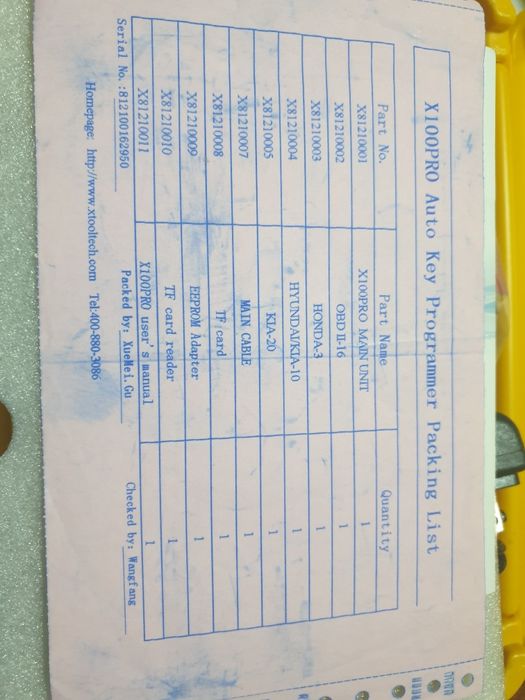 X100PRO Auto Key Programmer Packing List
Part No. Part Name Quantity
X81210001 X100PRO MAIN UNIT 1
X81210002 OBDⅡ-16 1
X81210003 HONDA-3 1
X81210004 HYUNDAI/KIA-10 1
X81210005 KIA-20 1
X81210007 MAIN CABLE 1
X81210008 TF card 1
X81210009 EEPROM Adapter 1
X81210010 TF card reader 1
X81210011 X100PRO user's manual 1
Serial No.:812100162950 Packed by: XueMei.Gu Checked by: Wangfang
Homepage: http://www.xtooltech.com Tel:400-880-3086